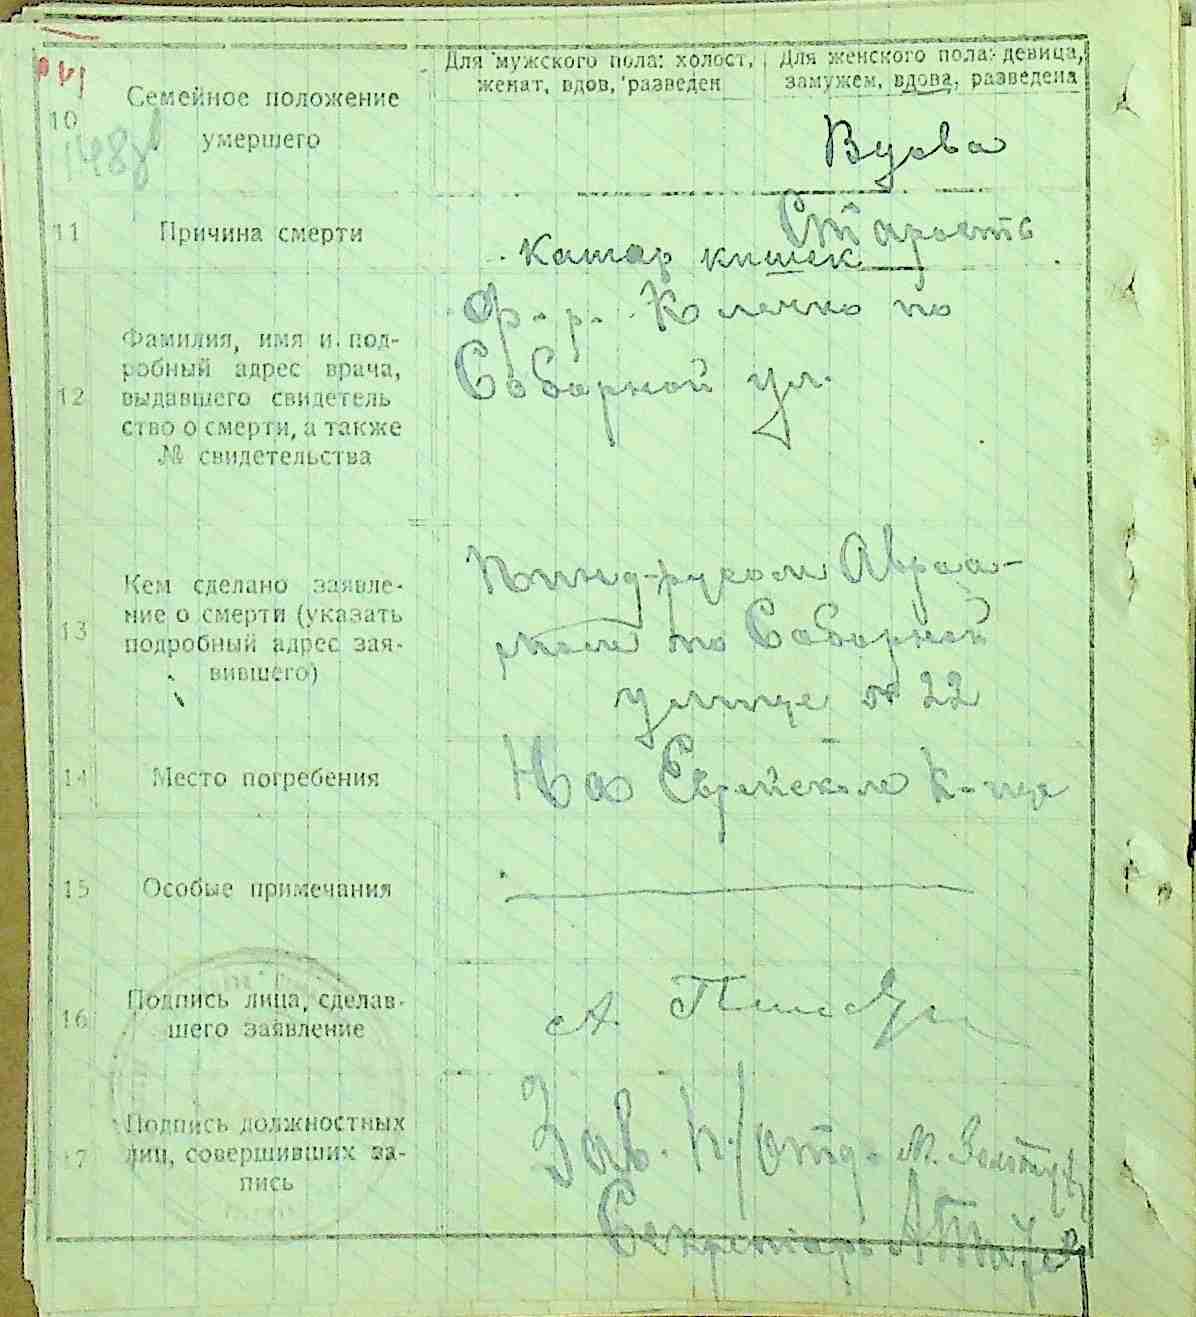 Для мужского пола: холост,
женат, вдов, разведен
Для женского пола: девица,
замужем, вдова, разведена
10
Семейное положение
умершего
Вдова
11
Причина смерти
Старость
Катар кишек
12
Фамилия, имя и под-
робный адрес врача,
выдавшего свидетель
ство о смерти, а также
№ свидетельства
по
Соборной ул.
13
Кем сделано заявле-
ние о смерти (указать
подробный адрес зая-
вившего)
Авраа-
мом по Соборной
улице № 22
14
Место погребения
На Еврейском к-ще
15
Особые примечания
16
Подпись лица, сделав-
шего заявление
А.
17
Подпись должностных
лиц, совершивших за-
пись
Зав. п/отд. М.
Секретарь